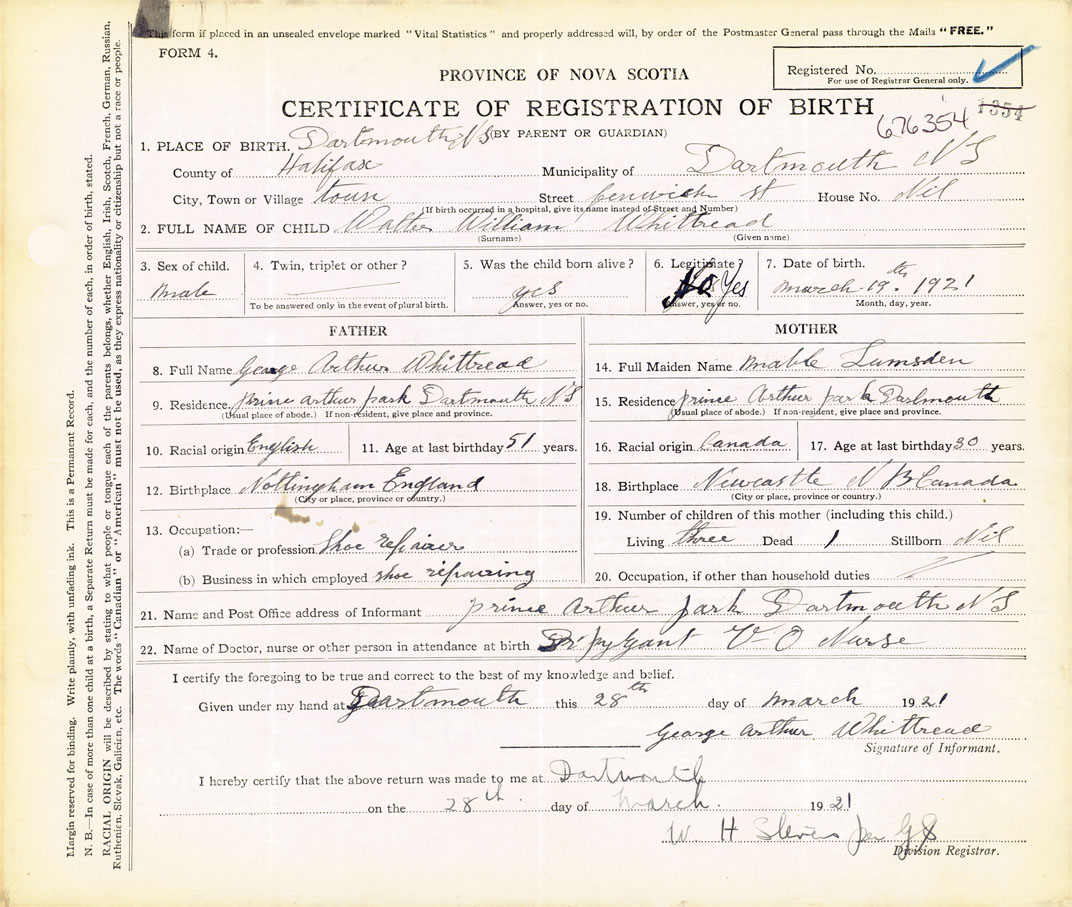 This form if placed in an unsealed envelope marked "Vital Statistics" and properly addressed will, by order of the Postmaster General pass through the Mails "FREE."
FORM 4.
Registered No.
For use of Registrar General only.
PROVINCE OF NOVA SCOTIA
CERTIFICATE OF REGISTRATION OF BIRTH
676354 1354
(BY PARENT OR GUARDIAN)
1. PLACE OF BIRTH. Dartmouth N S
County of Halifax Municipality of Dartmouth N S
City, Town or Village town Street fenwick st House No. Nil
(If birth occurred in a hospital, give its name instead of Street and Number)
2. FULL NAME OF CHILD Walter William Whittread
(Surname) (Given name)
3. Sex of child. 4. Twin, triplet or other? 5. Was the child born alive? 6. Legitimate? 7. Date of birth.
male yes No Yes march 19th 1921
To be answered only in the event of plural birth. Answer, yes or no. Answer, yes or no. Month, day, year.
FATHER
8. Full Name George Arthur Whittread
9. Residence prince arthur park Dartmouth N S
(Usual place of abode.) If non-resident, give place and province.
10. Racial origin English 11. Age at last birthday 51 years.
12. Birthplace Nottingham England
(City or place, province or country.)
13. Occupation:—
(a) Trade or profession Shoe repairer
(b) Business in which employed shoe repairing
MOTHER
14. Full Maiden Name Mable Lumsden
15. Residence prince Arthur park Dartmouth
(Usual place of abode.) If non-resident, give place and province.
16. Racial origin Canada 17. Age at last birthday 30 years.
18. Birthplace Newcastle N B Canada
(City or place, province or country.)
19. Number of children of this mother (including this child.)
Living three Dead 1 Stillborn Nil
20. Occupation, if other than household duties
21. Name and Post Office address of Informant prince Arthur park Dartmouth N S
22. Name of Doctor, nurse or other person in attendance at birth V O Nurse
I certify the foregoing to be true and correct to the best of my knowledge and belief.
Given under my hand at Dartmouth this 28th day of march 1921
George Arthur Whittread
Signature of Informant.
I hereby certify that the above return was made to me at Dartmouth
on the 28th day of March. 1921
W. H
Division Registrar.
Margin reserved for binding. Write plainly, with unfading ink. This is a Permanent Record.
N. B.—In case of more than one child at a birth, a Separate Return must be made for each, and the number of each, in order of birth, stated.
RACIAL ORIGIN will be described by stating to what people or tongue each of the parents belongs, whether English, Irish, Scotch, French, German, Russian,
Ruthenian, Slovak, Galician, etc. The words "Canadian" or "American" must not be used, as they express nationality or citizenship but not a race or people.